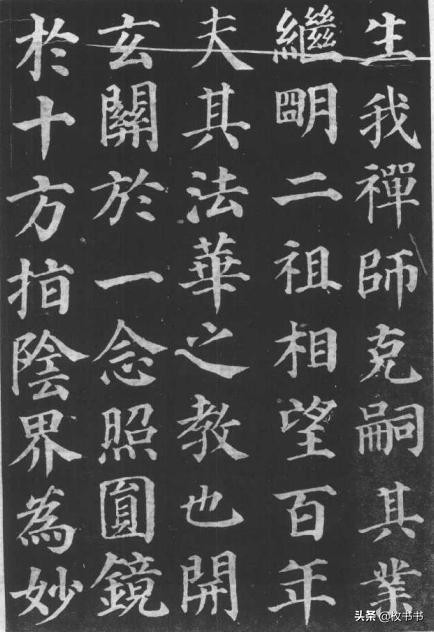 生我禪師克嗣其業
繼明二祖相望百年
夫其法華之教也開
玄關於一念照圓鏡
於十方指陰界為妙
头条 @枚书书